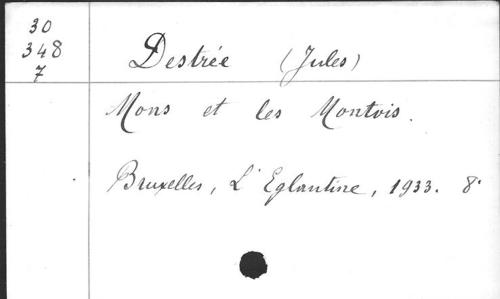 30
348
7
Destrée (Jules)
Mons et les Montois.
Bruxelles, L'Eglantine, 1933. 8°